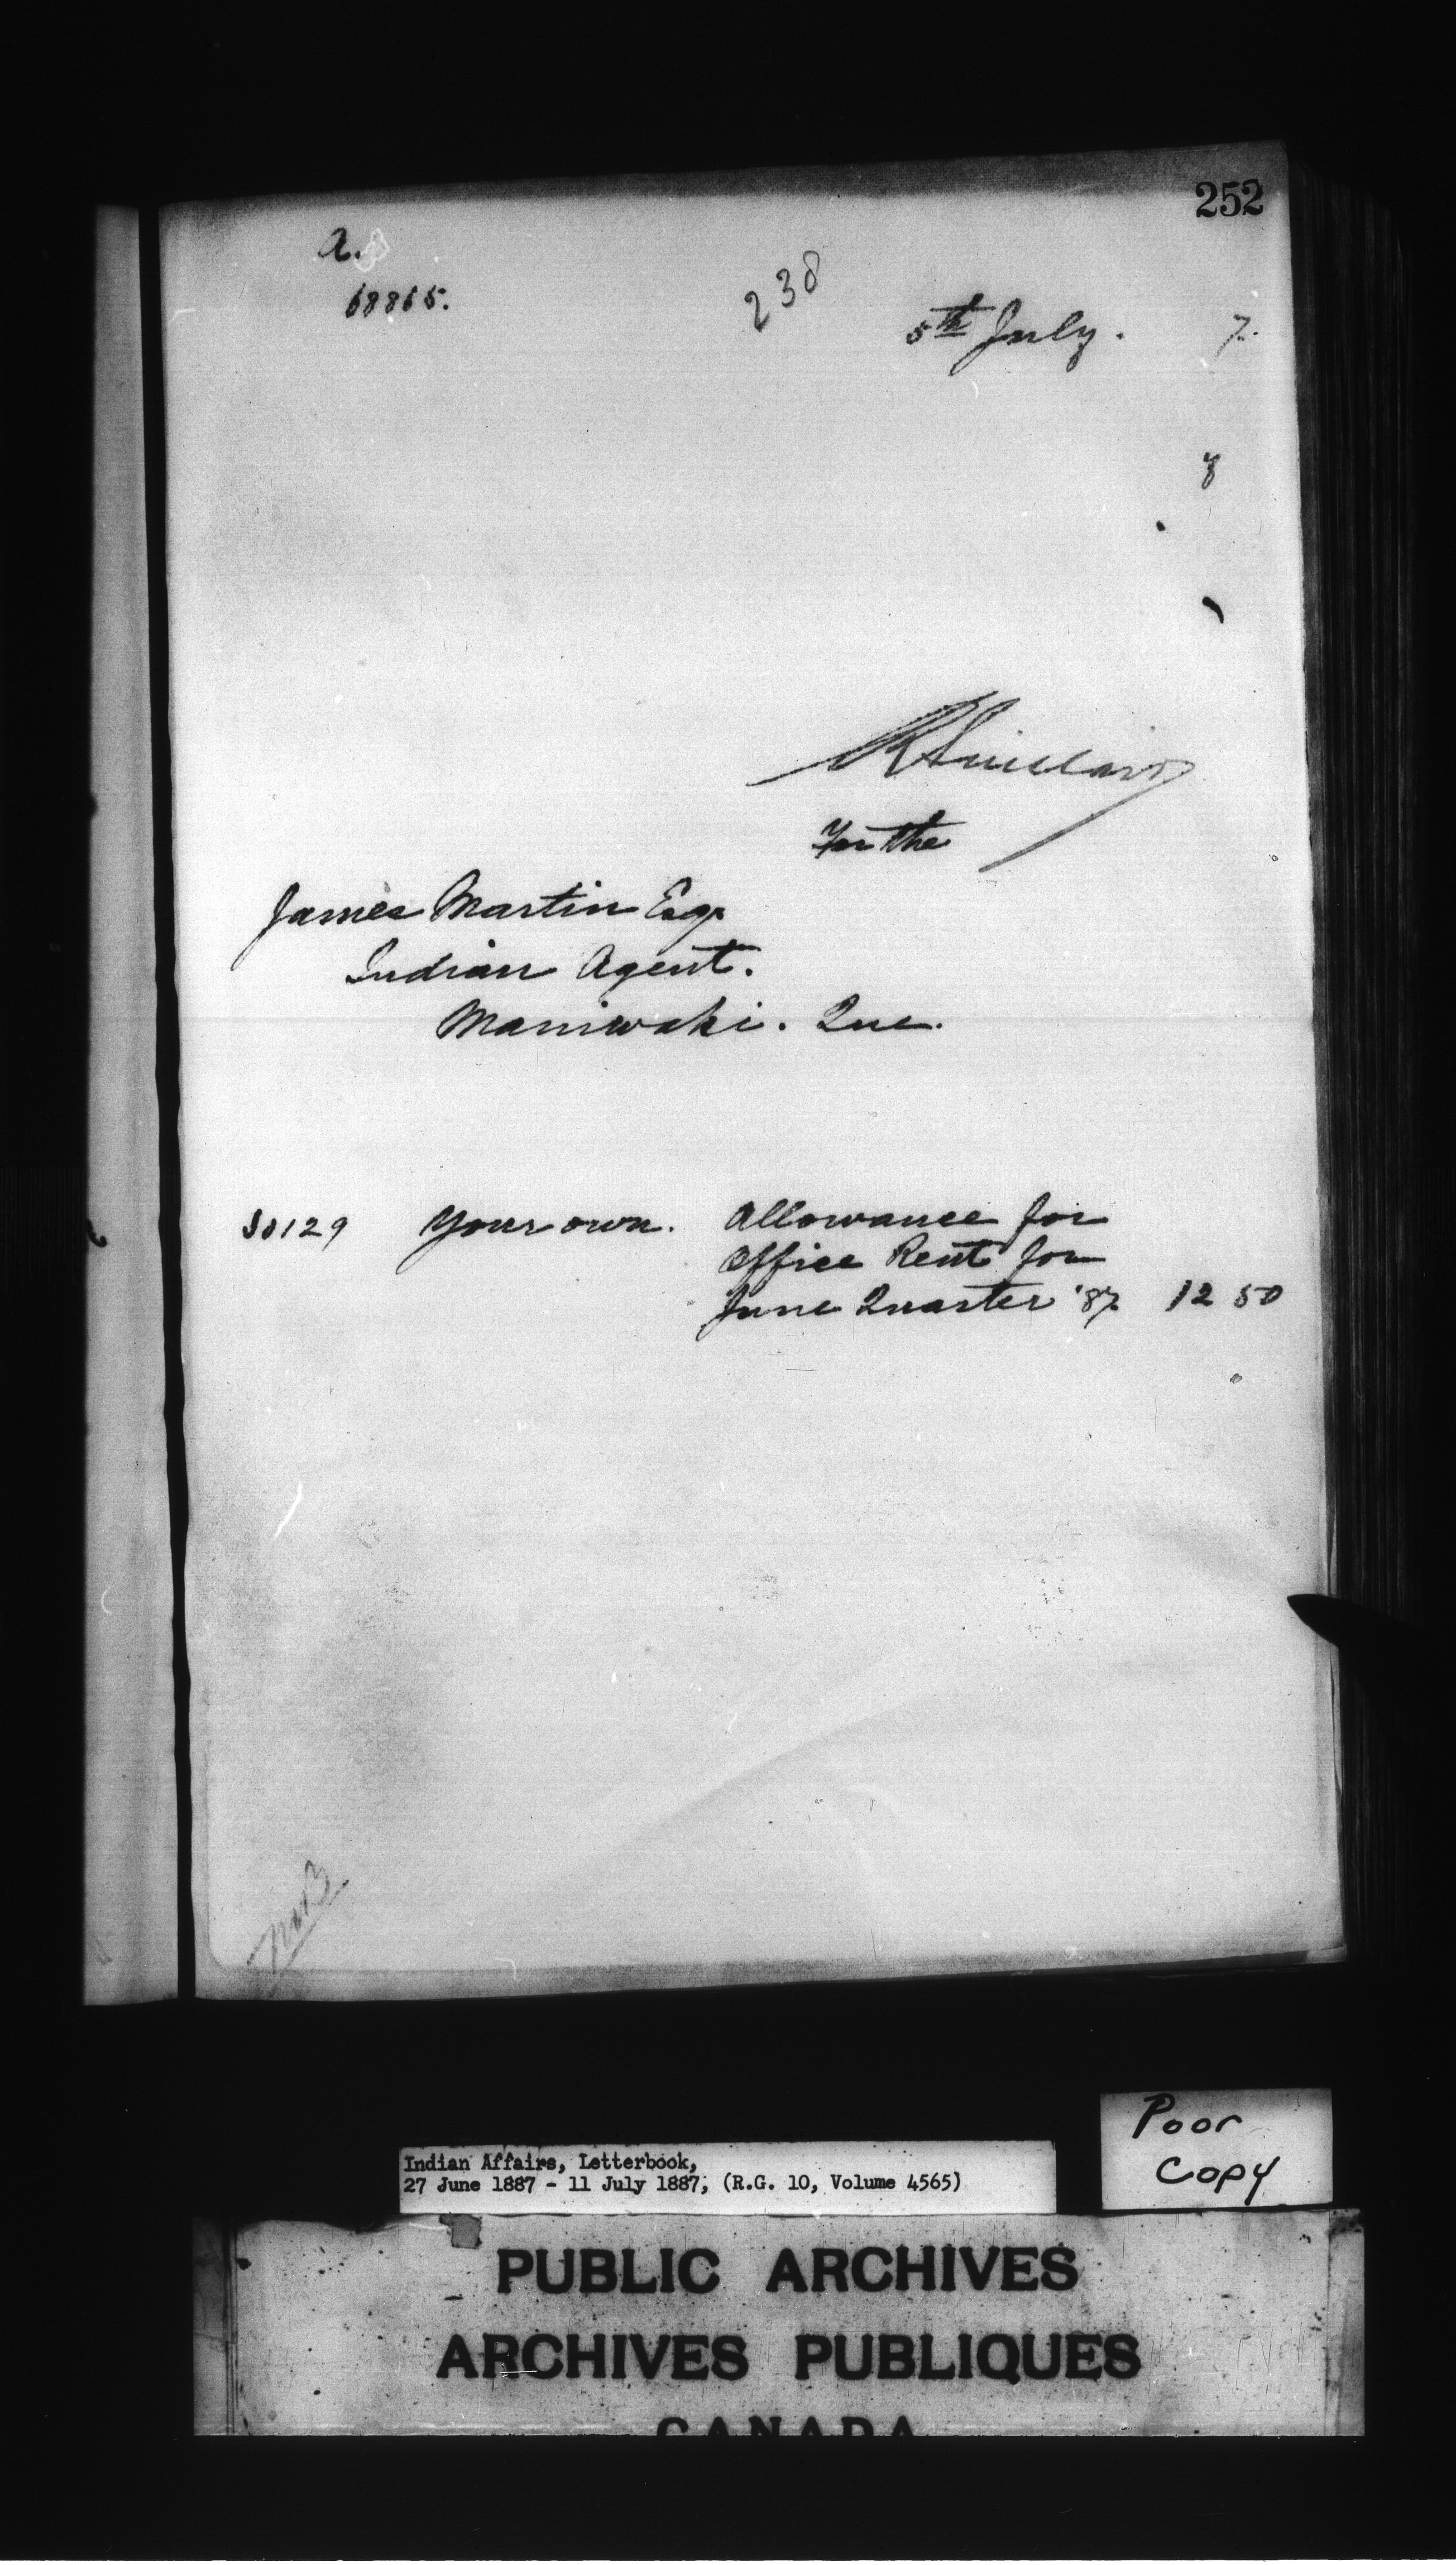 252
a.
68865.
238
5th July. 7.
y
R Sinclair
For the
James Martin Esq.
Indian Agent.
Maniwaki. Que.
30129 Your own. Allowance for
Office Rent for
June Quarter '87 12 50
Poor
Copy
Indian Affairs, Letterbook,
27 June 1887 - 11 July 1887, (R.G. 10, Volume 4565)
PUBLIC ARCHIVES
ARCHIVES PUBLIQUES
CANADA